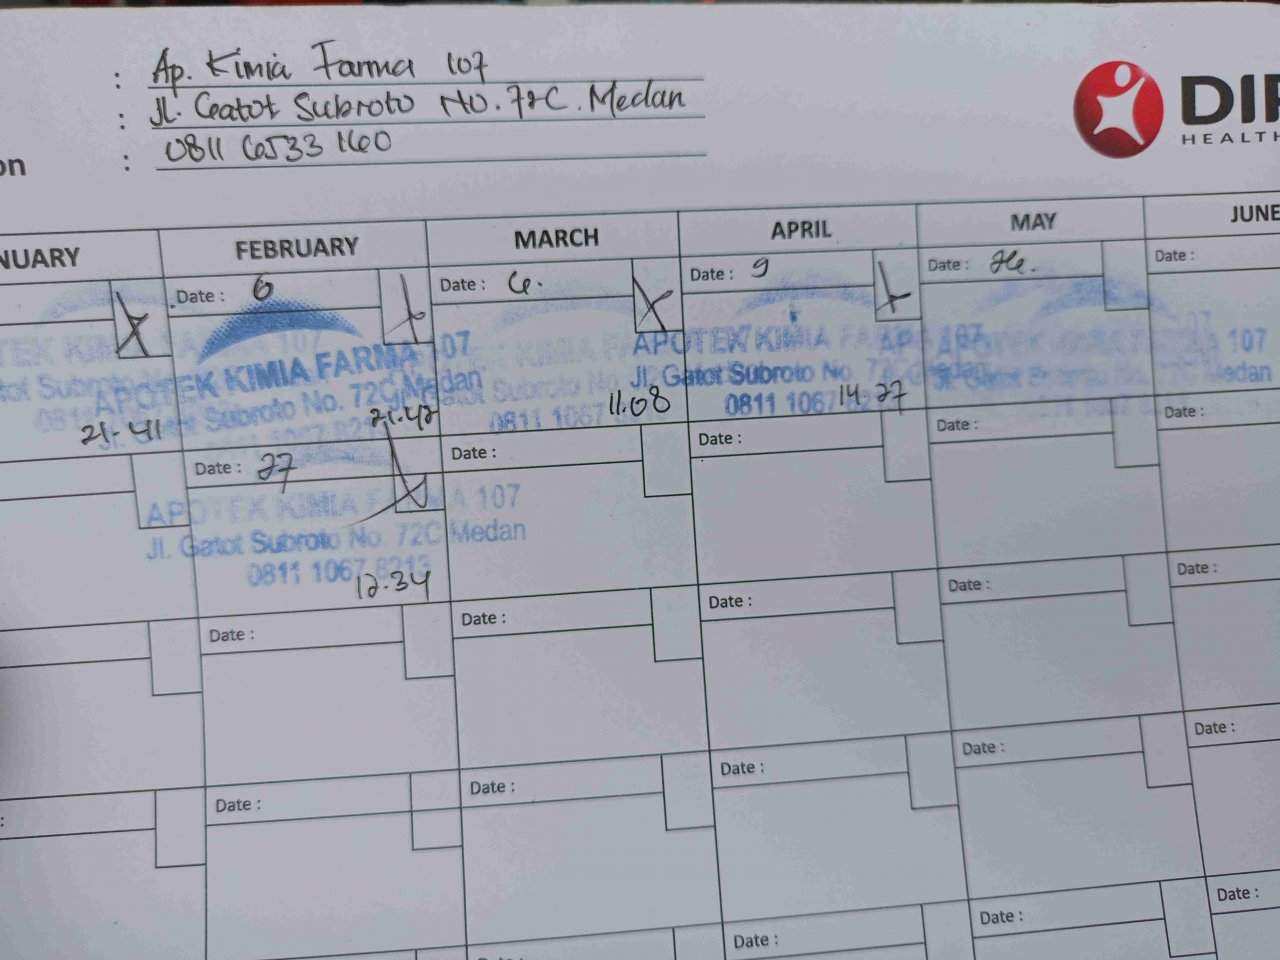 : Ap. Kimia Farma 107
: Jl. Gatot Subroto No. 72C. Medan
on : 0811 6533 160
DIP
HEALTH
NUARY FEBRUARY MARCH APRIL MAY JUNE
Date : 6 Date : 6. Date : 9 Date : 26. Date :
APOTEK KIMIA FARMA 107
Jl. Gatot Subroto No. 72C Medan
APOTEK KIMIA FARMA 107
Jl. Gatot Subroto No. 72C Medan
0811 1067 8213
21.41 21.42 11.08 14.27
Date : 27 Date : Date : Date : Date :
APOTEK KIMIA FARMA 107
Jl. Gatot Subroto No 72C Medan
0811 1067 8213
12.34
Date : Date : Date : Date : Date :
: Date : Date : Date : Date : Date :
Date : Date : Date : Date :